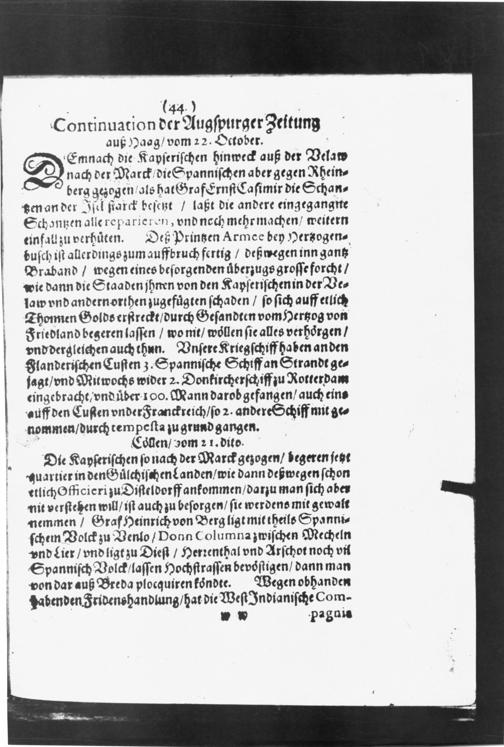 (44.)
Continuation der Augspurger Zeitung
auß Haag/vom 22. October.
DEmnach die Kayserischen hinweck auß der Velaw
nach der Marck/die Spannischen aber gegen Rhein-
berg gezogen/als hat Graf Ernst Casimir die Schan-
tzen an der Isel starck besetzt / laßt die andere eingegangne
Schantzen alle reparieren, vnd noch mehr machen/ weitern
einfall zu verhüten. Deß Printzen Armee bey Hertzogen-
busch ist allerdings zum auffbruch fertig / deßwegen inn gantz
Braband / wegen eines besorgenden überzugs grosse forcht/
wie dann die Staaden jhnen von den Kayserischen in der Ve-
law vnd andern orthen zugefügten schaden / so sich auff etlich
Thonnen Golds erstreckt/durch Gesandten vom Hertzog von
Friedland begeren lassen / wo nit/ wöllen sie alles verhörgen/
vnd dergleichen auch thun. Vnsere Kriegschiff haben an den
Flanderischen Custen 3. Spannische Schiff an Strandt ge-
jagt/vnd Mitwochs wider 2. Donkircherschiff zu Rotterdam
eingebracht/vnd über 100. Mann darob gefangen/auch eins
auff den Custen vnder Franckreich/so 2. andere Schiff mit ge-
nommen/durch tempesta zu grund gangen.
Cöllen/vom 21. dito.
Die Kayserischen so nach der Marck gezogen/ begeren jetzt
quartier in den Gülchischen Landen/wie dann deßwegen schon
etlich Officieri zu Disteldorff ankommen/darzu man sich aber
nit verstehen will/ist auch zu besorgen/sie werdens mit gewalt
nemmen / Graf Heinrich von Berg ligt mit theils Spanni-
schem Volck zu Venlo/Donn Columna zwischen Mecheln
vnd Lier/vnd ligt zu Diest / Herrenthal vnd Arschot noch vil
Spannisch Volck/lassen Hochstrassen bevöstigen/dann man
von dar auß Breda plocquiren köndte. Wegen obhanden
habenden Fridenshandlung/hat die West Indianische Com-
w w pagnia